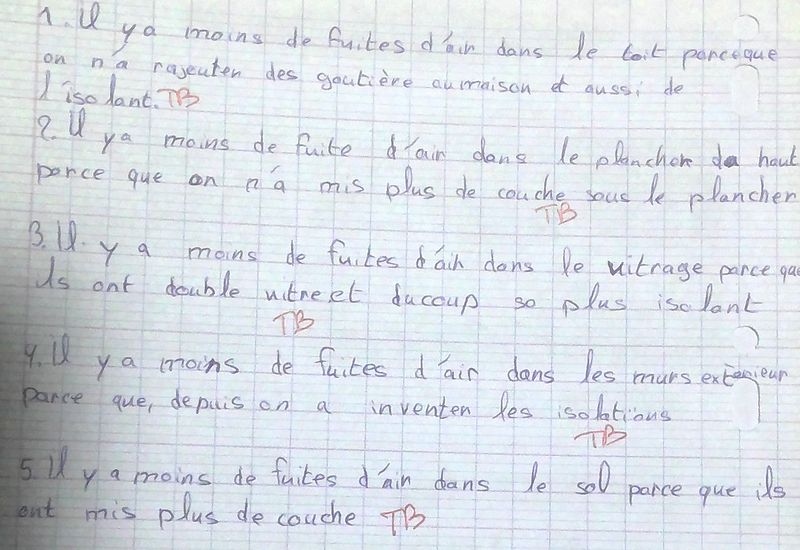 1. Il y a moins de fuites d'air dans le toit parceque
on n'a rajeuter des goutière au maison et aussi de
l'isolant. TB
2. Il y a moins de fuite d'air dans le plancher da haut
parce que on n'a mis plus de couche sous le plancher
TB
3. Il y a moins de fuites d'air dans le vitrage parce que
ils ont double vitre et ducoup so plus isolant
TB
4. Il y a moins de fuites d'air dans les murs exterieur
parce que, depuis on a inventer les isolations
TB
5. Il y a moins de fuites d'air dans le sol parce que ils
ont mis plus de couche TB